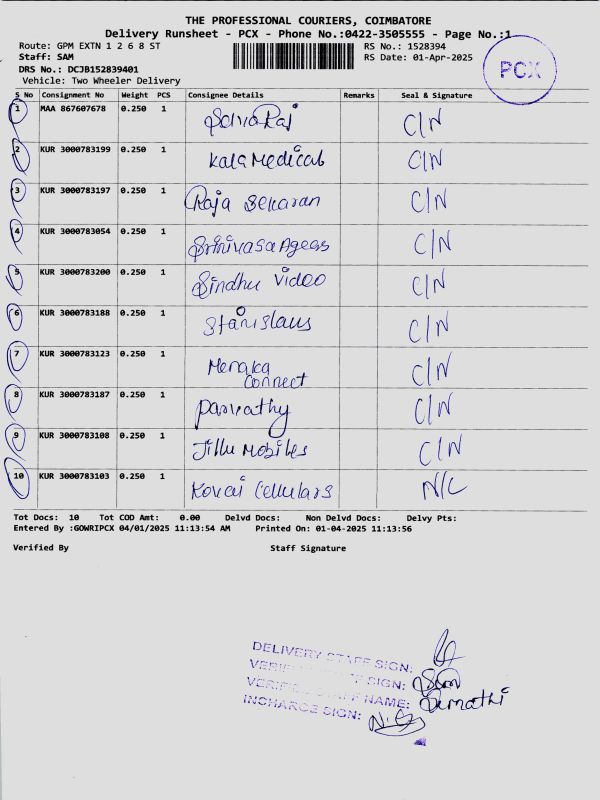 THE PROFESSIONAL COURIERS, COIMBATORE
Delivery Runsheet - PCX - Phone No.:0422-3505555 - Page No.:1
Route: GPM EXTN 1 2 6 8 ST RS No.: 1528394
Staff: SAM RS Date: 01-Apr-2025
DRS No.: DCJB152839401
Vehicle: Two Wheeler Delivery
PCX
S No Consignment No Weight PCS Consignee Details Remarks Seal & Signature
1 MAA 867607678 0.250 1 SelvaRaj C/N
2 KUR 3000783199 0.250 1 Kala Medicals C/N
3 KUR 3000783197 0.250 1 Raja Sekaran C/N
4 KUR 3000783054 0.250 1 Srinivasa Agees C/N
5 KUR 3000783200 0.250 1 Sindhu Video C/N
6 KUR 3000783188 0.250 1 Stanislaus C/N
7 KUR 3000783123 0.250 1 Menaka Connect C/N
8 KUR 3000783187 0.250 1 Parvathy C/N
9 KUR 3000783108 0.250 1 Jillu Mobiles C/N
10 KUR 3000783103 0.250 1 Kovai Cellulars N/C
Tot Docs: 10 Tot COD Amt: 0.00 Delvd Docs: Non Delvd Docs: Delvy Pts:
Entered By :GOWRIPCX 04/01/2025 11:13:54 AM Printed On: 01-04-2025 11:13:56
Verified By Staff Signature
DELIVERY STAFF SIGN:
SIGN:
VERIFIED STAFF NAME:
INCHARGE SIGN: